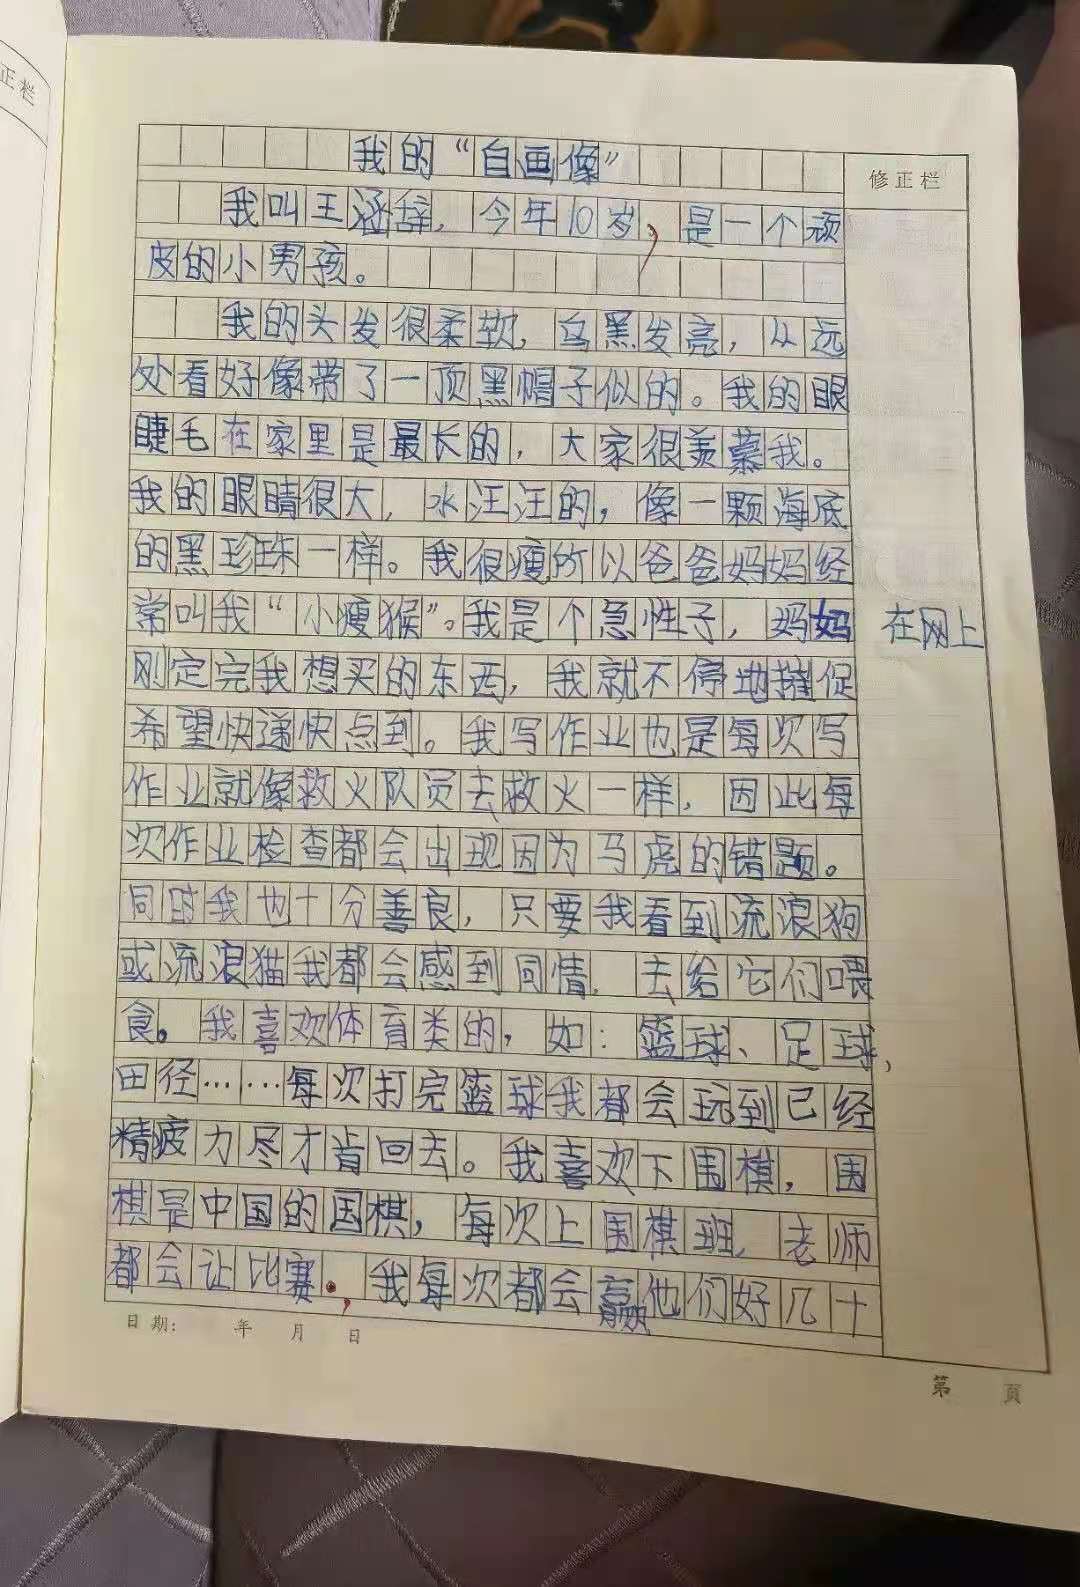 正栏
我的“自画像”
修正栏
我叫王涵辞，今年10岁，是一个顽
皮的小男孩。
我的头发很柔软，乌黑发亮，从远
处看好像带了一顶黑帽子似的。我的眼
睫毛在家里是最长的，大家很羡慕我。
我的眼睛很大，水汪汪的，像一颗海底
的黑珍珠一样。我很瘦所以爸爸妈妈经
常叫我“小瘦猴”。我是个急性子，妈妈 在网上
刚定完我想买的东西，我就不停地摧促
希望快递快点到。我写作业也是每次写
作业就像救火队员去救火一样，因此每
次作业检查都会出现因为马虎的错题。
同时我也十分善良，只要我看到流浪狗
或流浪猫我都会感到同情，去给它们喂
食。我喜欢体育类的，如：篮球、足球、
田径……每次打完篮球我都会玩到已经
精疲力尽才肯回去。我喜欢下围棋，围
棋是中国的国棋，每次上围棋班，老师
都会让比赛，我每次都会赢他们好几十
日期： 年 月 日
第 页